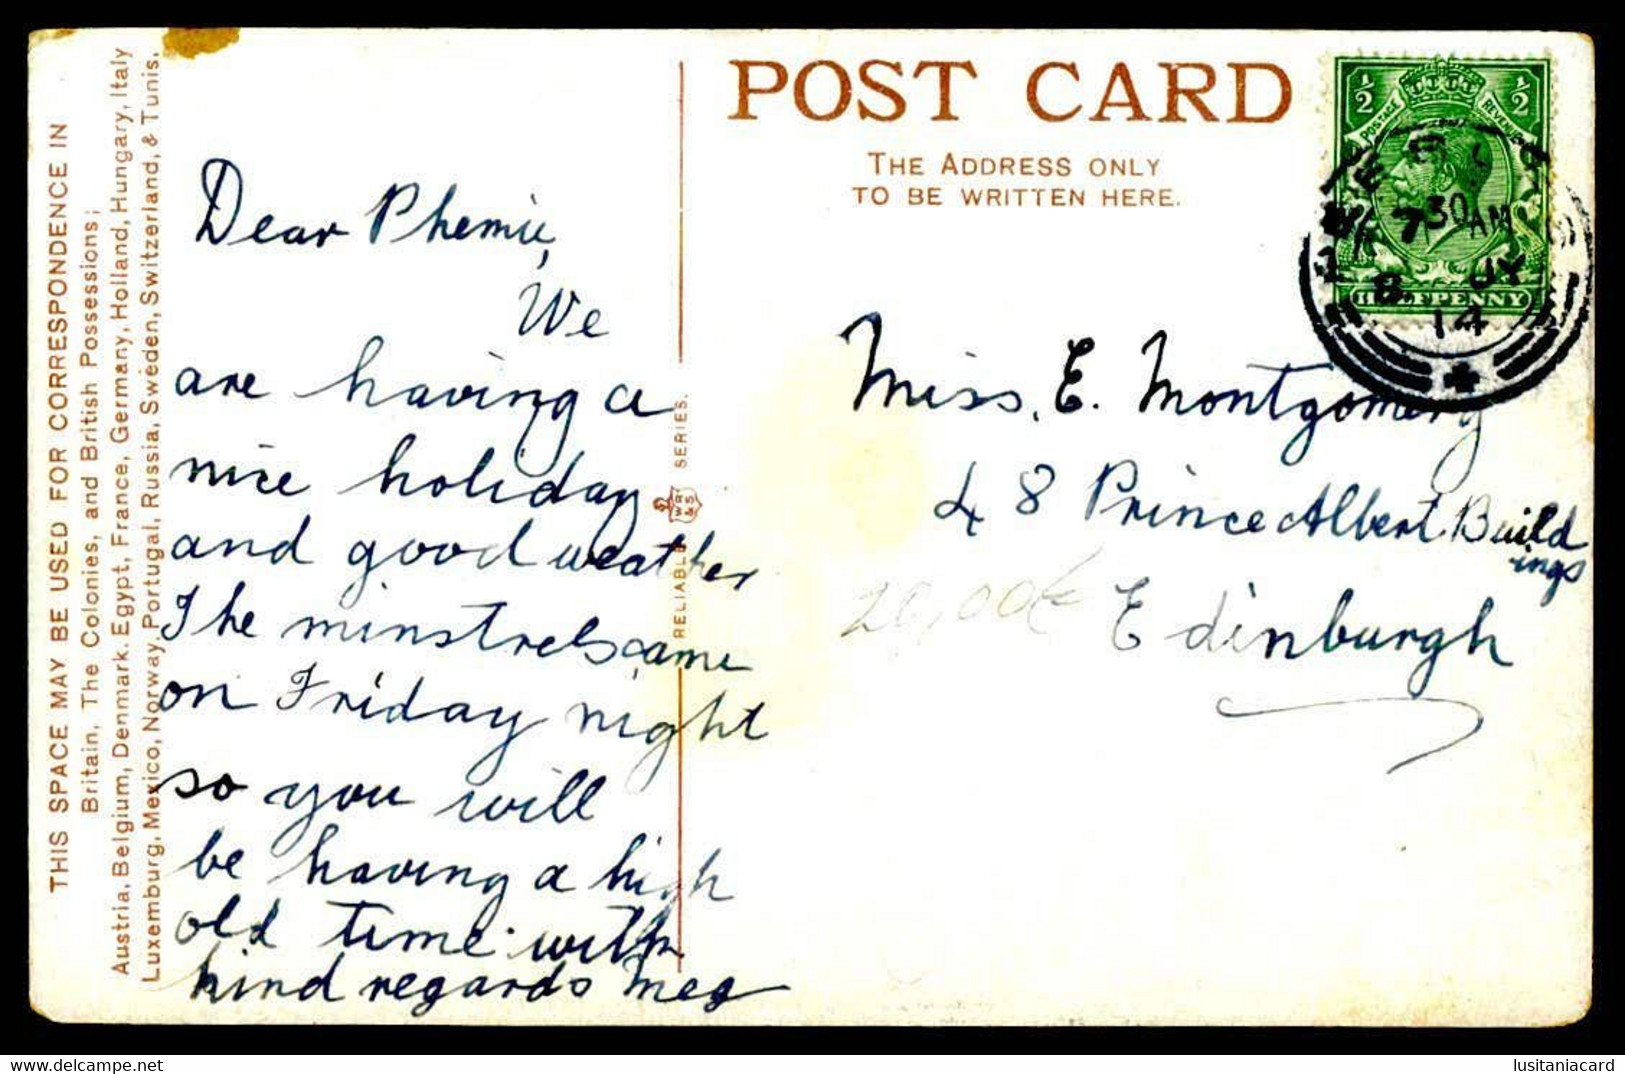 THIS SPACE MAY BE USED FOR CORRESPONDENCE IN
Britain, The Colonies, and British Possessions;
Austria, Belgium, Denmark, Egypt, France, Germany, Holland, Hungary, Italy
Luxemburg, Mexico, Norway, Portugal, Russia, Sweden, Switzerland, & Tunis.
Dear Phemie,
We
are having a
nice holiday
and good weather
The minstrels came
on Friday night
so you will
be having a high
old time with
kind regards Meg
RELIABLE WR&S SERIES.
POST CARD
THE ADDRESS ONLY
TO BE WRITTEN HERE.
½ ½
POSTAGE REVENUE
HALFPENNY
7 30 AM
8 JY
14
Miss. E. Montgomery
48 Prince Albert Build
ings
Edinburgh
20,00€
lusitaniacard